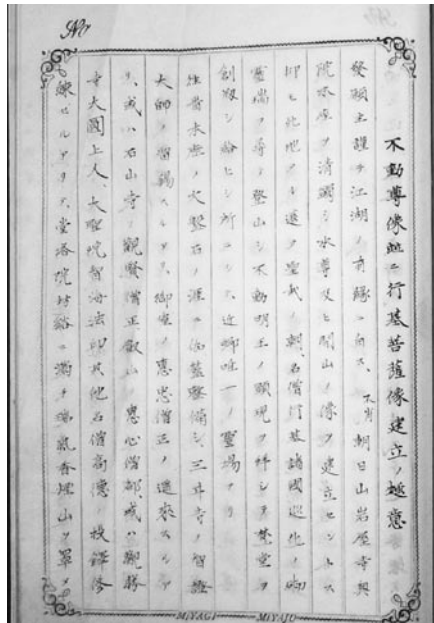 No
不動尊像並ニ行基菩薩像建立ノ趣意
發願主謹テ江湖ノ有縁ニ白ス、不肖朝日山岩屋寺興
院本座ヲ清躅シ本尊及ヒ開山ノ像ヲ建立セントス
抑モ此地タル遠ク聖武ノ朝、名僧行基諸國巡化ノ砌
靈端ヲ尋ネ登山シ不動明王ノ顕現ヲ拝シテ梵堂ヲ
創叛シ給ヒシ所ニシテ、近郷唯一ノ聖場ナリ
往昔本座ノ大盤石ノ涯ニ伽藍整備シ、三井寺ノ智證
大師ノ留錫スルアリ、御室ノ惠忠僧正ノ適來スルア
リ、或ハ石山寺ノ觀賢僧正叡山ノ惠心僧都、或ハ觀勝
寺大圓上人、大聖院智海法印其他名僧高德ノ投錫修
練セルアリテ、堂塔院坊谿ニ滿チ瑞氣香煙山ヲ罩メ
MIYAGI MIYAJO